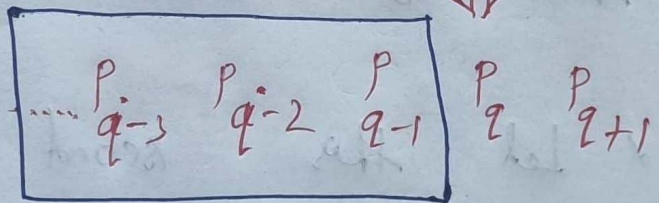 ..... p q-3 p q-2 p q-1 p q p q+1